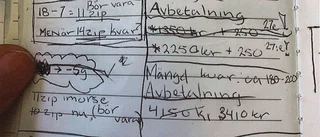 Bör vara
18-7 = 11 zip
MENAR 14 zip kvar?
→ -5g
11 zip imorse
zip nu, bör vara
Avbetalning
+ 250
27:e
*2250 kr + 250
27:e
Mängd kvar: ca 180-200
Avbetalning
4150 kr, 3410 kr